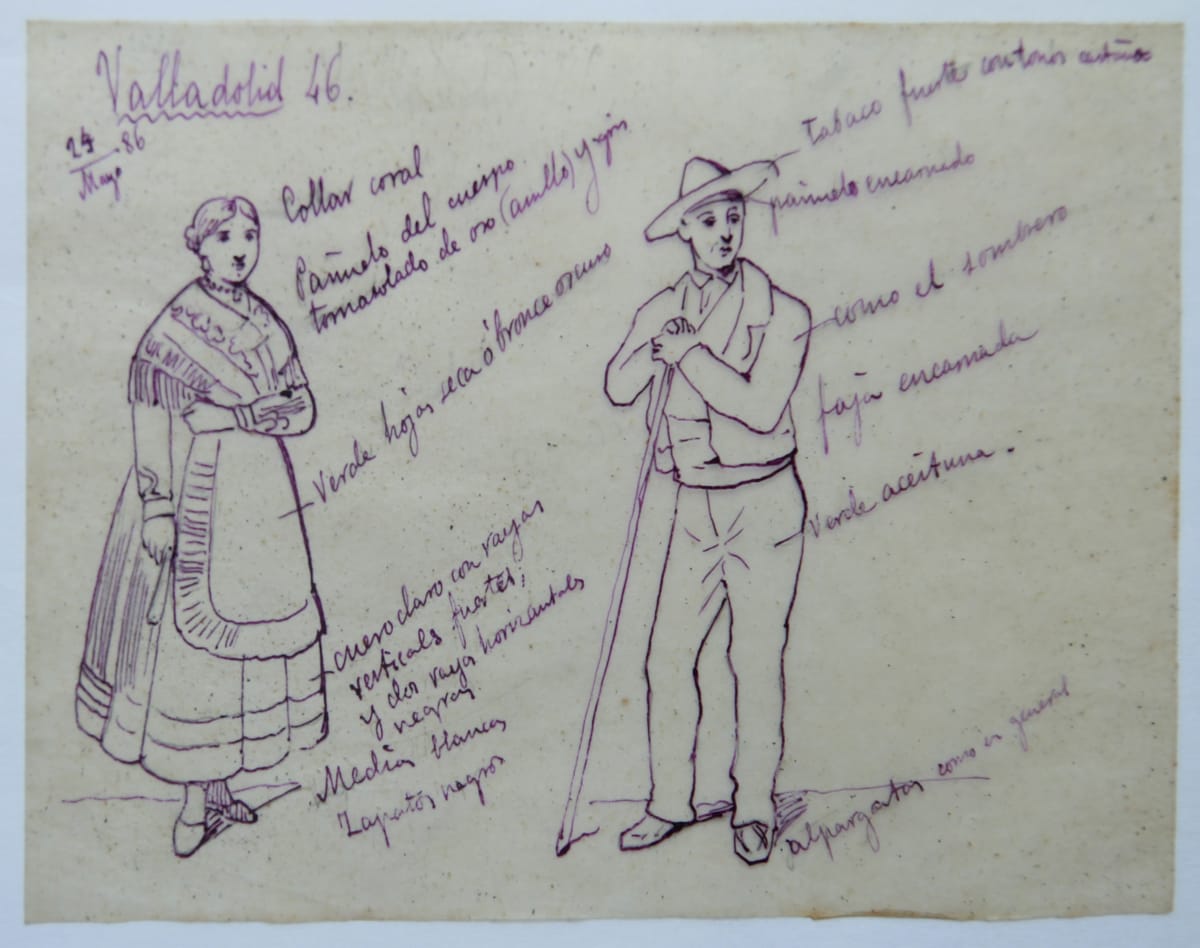 Valladolid 46.
24
Mayo 86
Collar coral
Pañuelo del cuerpo
tornasolado de oro (amillo) y
Verde hojas seca ó bronce oscuro
cuero claro con rayas
verticals fuertes,
y dos rayas horizontales
negras
Medias blancas
Zapatos negros
Tabaco fuerte con tonos
pañuelo encarnado
como el sombrero
faja encarnada
Verde aceituna.
alpargatas como en general